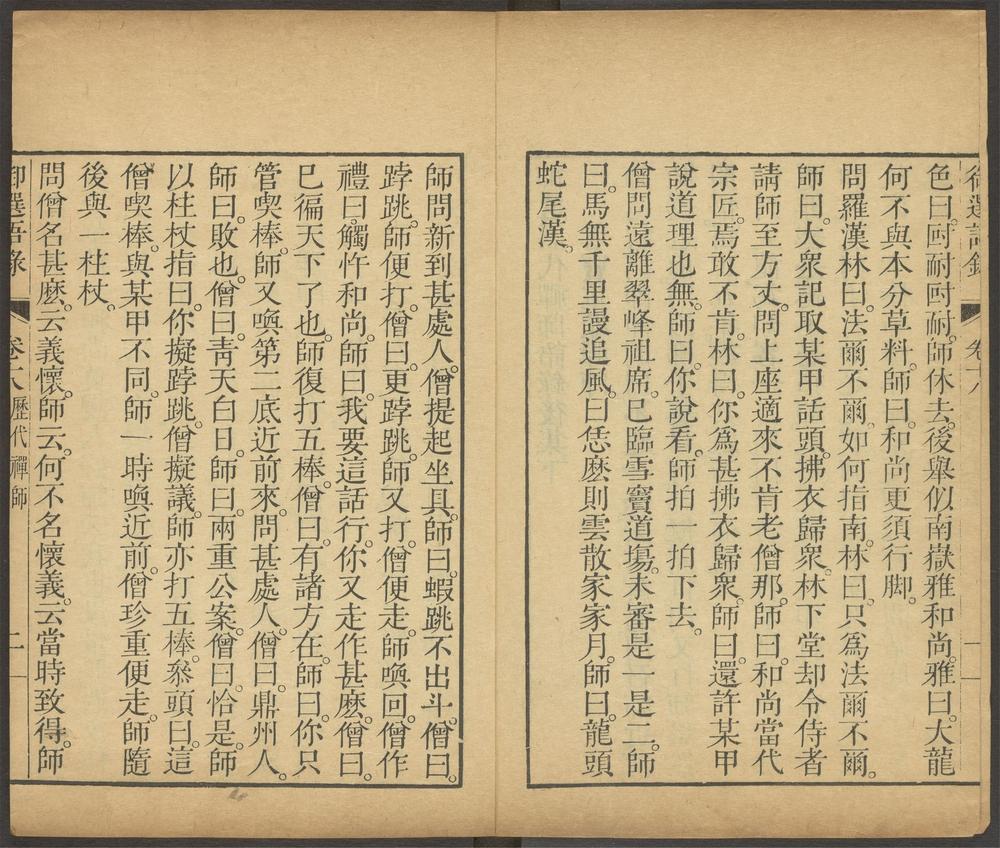 御選語錄
卷十八
一
色曰。㕤耐㕤耐。師休去。後舉似南嶽雅和尚。雅曰。大龍
何不與本分草料。師曰。和尚更須行脚。
問羅漢林曰。法爾不爾。如何指南。林曰。只為法爾不爾。
師曰。大衆記取某甲話頭。拂衣歸衆。林下堂却令侍者
請師至方丈。問上座適來不肯老僧那。師曰。和尚當代
宗匠。焉敢不肯。林曰。你為甚拂衣歸衆。師曰。還許某甲
說道理也無。師曰。你說看。師拍一拍下去。
僧問遠離翠峰祖席。已臨雪竇道場。未審是一是二。師
曰。馬無千里謾追風。曰恁麽則雲散家家月。師曰。龍頭
蛇尾漢。
師問新到甚處人。僧提起坐具。師曰。蝦跳不出斗。僧曰。
𨁝跳。師便打。僧曰。更𨁝跳。師又打。僧便走。師喚回。僧作
禮曰。觸忤和尚。師曰。我要這話行。你又走作甚麽。僧曰。
已徧天下了也。師復打五棒。僧曰。有諸方在。師曰。你只
管喫棒。師又喚第二底近前來。問甚處人。僧曰。鼎州人。
師曰。敗也。僧曰。青天白日。師曰。兩重公案。僧曰。恰是。師
以柱杖指曰。你擬𨁝跳。僧擬議。師亦打五棒。叅頭曰。這
僧喫棒。與某甲不同。師一時喚近前。僧珍重便走。師隨
後與一柱杖。
問僧名甚麽。云義懷。師云。何不名懷義。云當時致得。師
御選語錄
卷十八歷代禪師
二